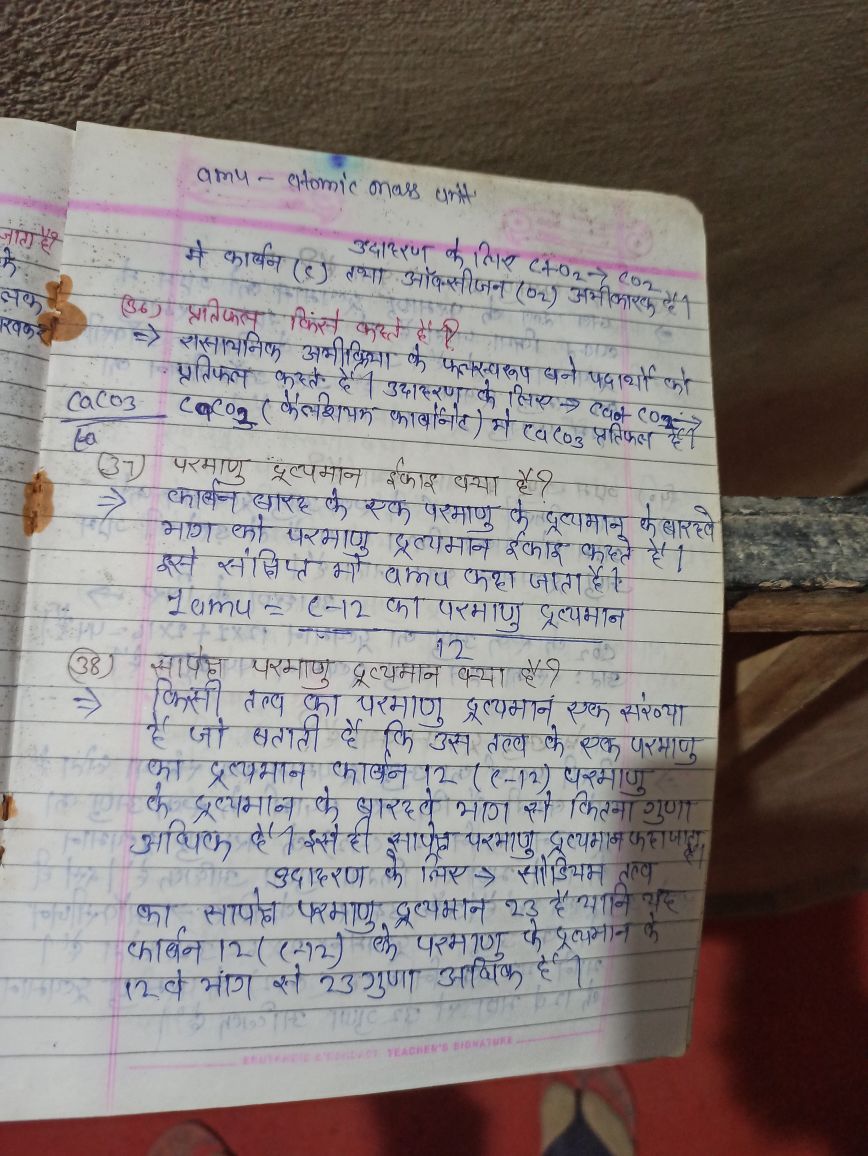 amu - atomic mass unit
उदाहरण के लिए C+O2→ CO2
में कार्बन (C) तथा ऑक्सीजन (O2) अभीकारक है।
(36) प्रतिफल किसे कहते हैं?
⇒ रासायनिक अभीक्रिया के फलस्वरूप बने पदार्थो को
प्रतिफल कहते हैं। उदाहरण के लिए → CaO CO2 →
CaCO3 (कैलशियम कार्बोनेट) में CaCO3 प्रतिफल है।
CaCO3
Ca
(37) परमाणु द्रव्यमान ईकाइ क्या है?
⇒ कार्बन बारह के एक परमाणु के द्रव्यमान के बारहवे
भाग को परमाणु द्रव्यमान ईकाइ कहते है।
इसे संक्षिप्त में amu कहा जाता है।
1amu = C-12 का परमाणु द्रव्यमान
12
(38) सापेक्ष परमाणु द्रव्यमान क्या है?
⇒ किसी तत्व का परमाणु द्रव्यमान एक संख्या
है जो बताती है कि उस तत्व के एक परमाणु
का द्रव्यमान कार्बन 12 (C-12) परमाणु
के द्रव्यमान के बारहवे भाग से कितना गुणा
अधिक है। इसे ही सापेक्ष परमाणु द्रव्यमान कहा जाता है।
उदाहरण के लिए → सोडियम तत्व
का सापेक्ष परमाणु द्रव्यमान 23 है यानि यह
कार्बन 12 (C-12) के परमाणु के द्रव्यमान के
12वे भाग से 23 गुणा अधिक है।
TEACHER'S SIGNATURE
जाता है?
के